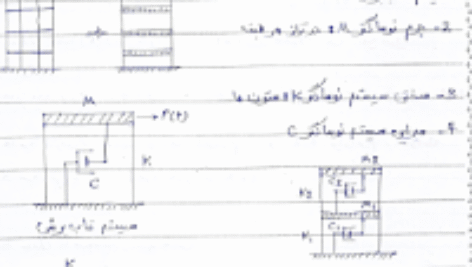 2- جرم نوماگر M در تراز هر طبقه
3- سختی سیستم نوماگر K ستون ها
4- میرایی سیستم نوماگر C
M
P(t)
K
C
سیستم قاب برشی
M2
K2
C2
M1
K1
C1
K